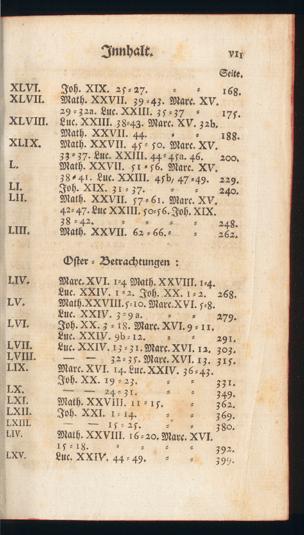 Innhalt. VII
Seite.
XLVI. Joh. XIX. 25=27. = = 168.
XLVII. Math. XXVII. 39=43. Marc. XV.
29=32a. Luc. XXIII. 35=37 = 175.
XLVIII. Luc. XXIII. 38=43. Marc. XV. 32b.
Math. XXVII. 44. = = 188.
XLIX. Math. XXVII. 45=50. Marc. XV.
33=37. Luc. XXIII. 44=45a. 46. 200.
L. Math. XXVII. 51=56. Marc. XV.
38=41. Luc. XXIII. 45b, 47=49. 229.
LI. Joh. XIX. 31=37. = = 240.
LII. Math. XXVII. 57=61. Marc. XV.
42=47. Luc XXIII. 50=56. Joh. XIX.
38=42. = = = 248.
LIII. Math. XXVII. 62=66. = = 262.
Oster=Betrachtungen:
LIV. Marc. XVI. 1=4 Math. XXVIII. 1=4.
Luc. XXIV. 1=2. Joh. XX. 1=2. 268.
LV. Math. XXVIII. 5=10. Marc. XVI. 5=8.
Luc. XXIV. 3=9a. = = 279.
LVI. Joh. XX. 3=18. Marc. XVI. 9=11.
Luc. XXIV. 9b=12. = = 291.
LVII. Luc. XXIV. 13=31. Marc. XVI. 12. 303.
LVIII. — — 32=35. Marc. XVI. 13. 315.
LIX. Marc. XVI. 14. Luc. XXIV. 36=43.
Joh. XX. 19=23. = = 331.
LX. — — 24=31. = = 349.
LXI. Math. XXVIII. 11=15. = 362.
LXII. Joh. XXI. 1=14. = = 369.
LXIII — — 15=25. = = 380.
LIV. Math. XXVIII. 16=20. Marc. XVI.
15=18. = = = = 392.
LXV. Luc. XXIV. 44=49. = = 399.